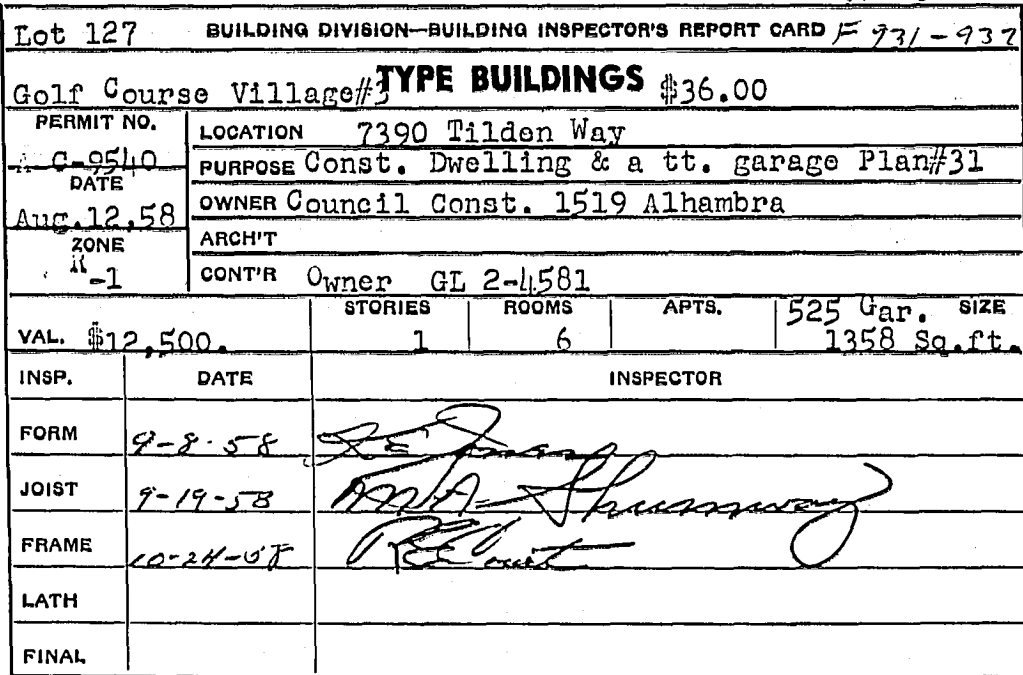 Lot 127 BUILDING DIVISION—BUILDING INSPECTOR'S REPORT CARD F 931-937
Golf Course Village#3 TYPE BUILDINGS $36.00
PERMIT NO. LOCATION 7390 Tilden Way
C-9540 PURPOSE Const. Dwelling & a tt. garage Plan#31
DATE
Aug.12,58 OWNER Council Const. 1519 Alhambra
ZONE ARCH'T
-1 CONT'R Owner GL 2-4581
STORIES ROOMS APTS. 525 Gar. SIZE
VAL. $12,500. 1 6 1358 Sq.ft.
INSP. DATE INSPECTOR
FORM 9-8-58
JOIST 9-19-58 Shumway
FRAME 10-24-58
LATH
FINAL